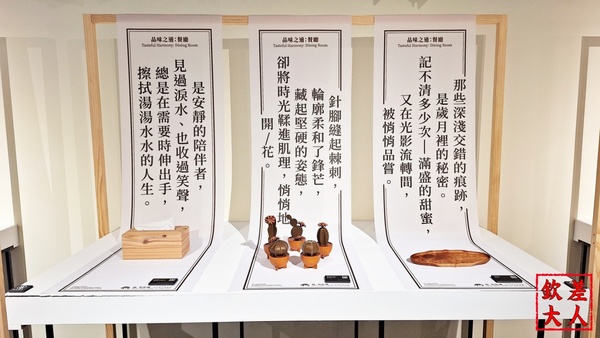 品味之適：餐廳
Tasteful Harmony: Dining Room
是安靜的陪伴者，
見過淚水、也收過笑聲，
總是在需要時伸出手，
擦拭湯湯水水的人生。
品味之適：餐廳
Tasteful Harmony: Dining Room
針腳縫起棘刺，
輪廓柔和了鋒芒，
藏起堅硬的姿態，
卻將時光鞣進肌理，悄悄地
開/花。
品味之適：餐廳
Tasteful Harmony: Dining Room
那些深淺交錯的痕跡，
是歲月裡的秘密。
記不清多少次—滿盛的甜蜜，
又在光影流轉間，
被悄悄品嘗。
欽差
大人